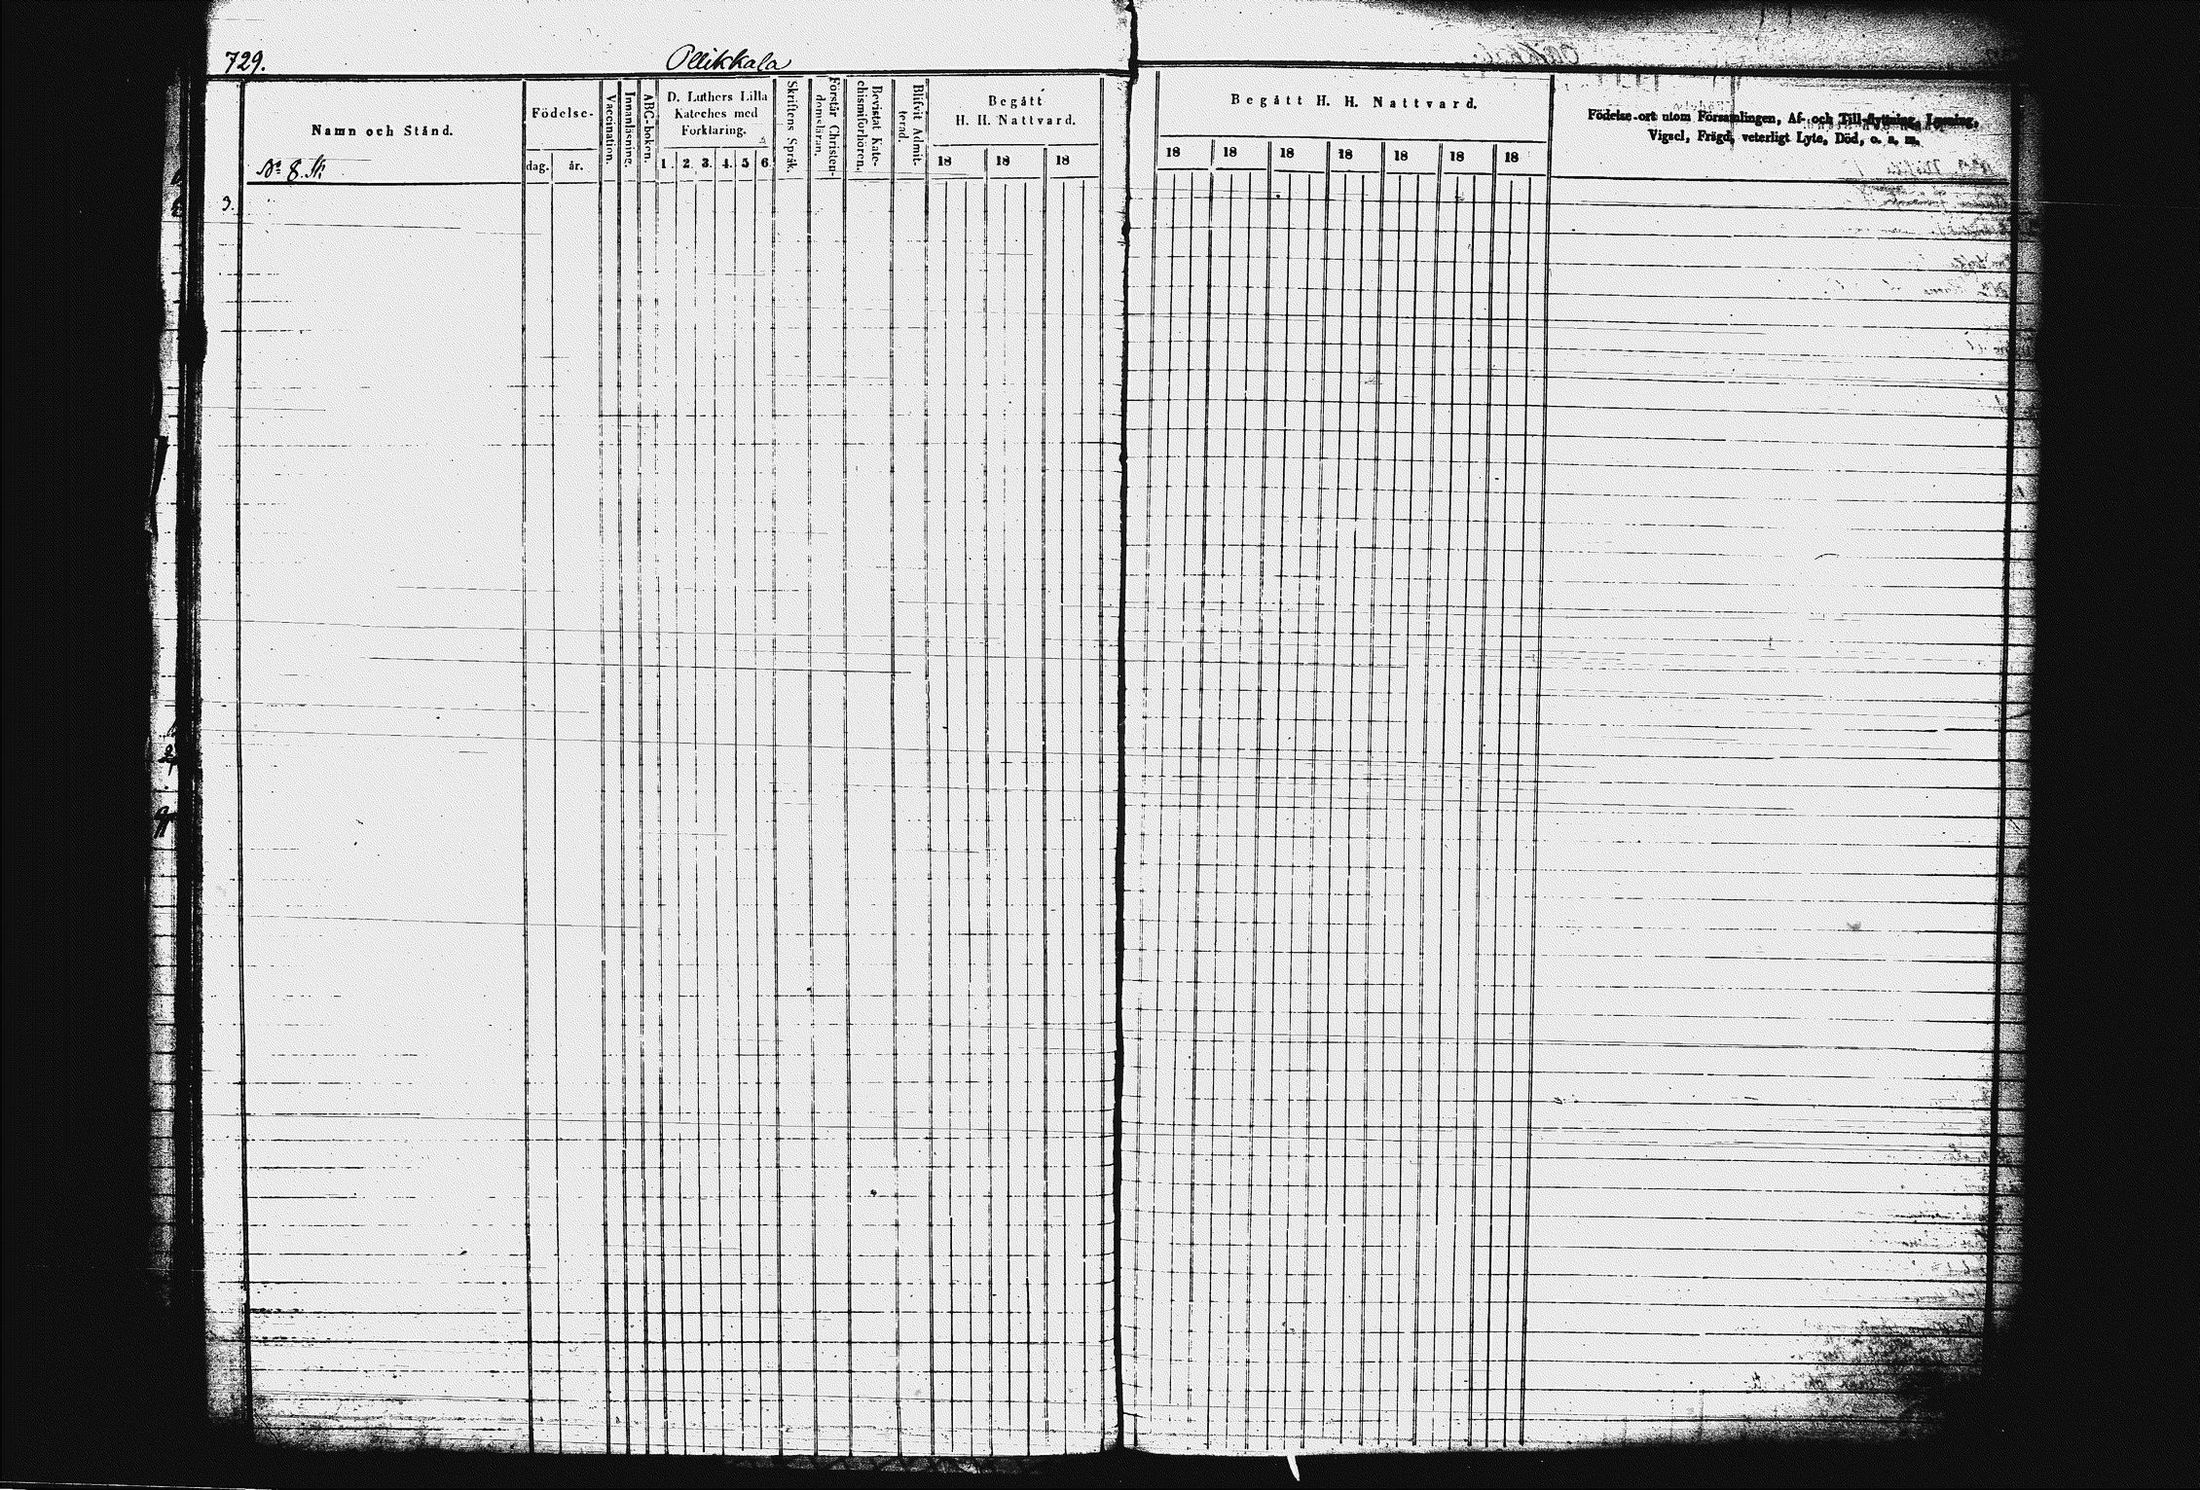 729.
Ollikkala
Namn och Stånd.
No 8. St
Födelse-
dag. år.
Vaccination.
Innanläsning.
ABC-boken.
D. Luthers Lilla
Kateches med
Förklaring.
1. 2. 3. 4. 5 6
Skriftens Språk.
Förstår Christen-
domsläran.
Bevistat Kate-
chismiförhören.
Blifvit Admit-
terad.
Begått
H. H. Nattvard.
18 18 18
Begått H. H. Nattvard.
18 18 18 18 18 18 18
Födelse-ort utom Församlingen, Af- och Till-flyttning, Lysning,
Vigsel, Frägd, veterligt Lyte, Död, o. s. m.
3.